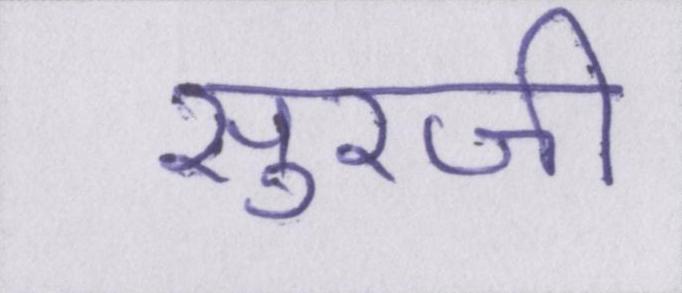 सुरजी